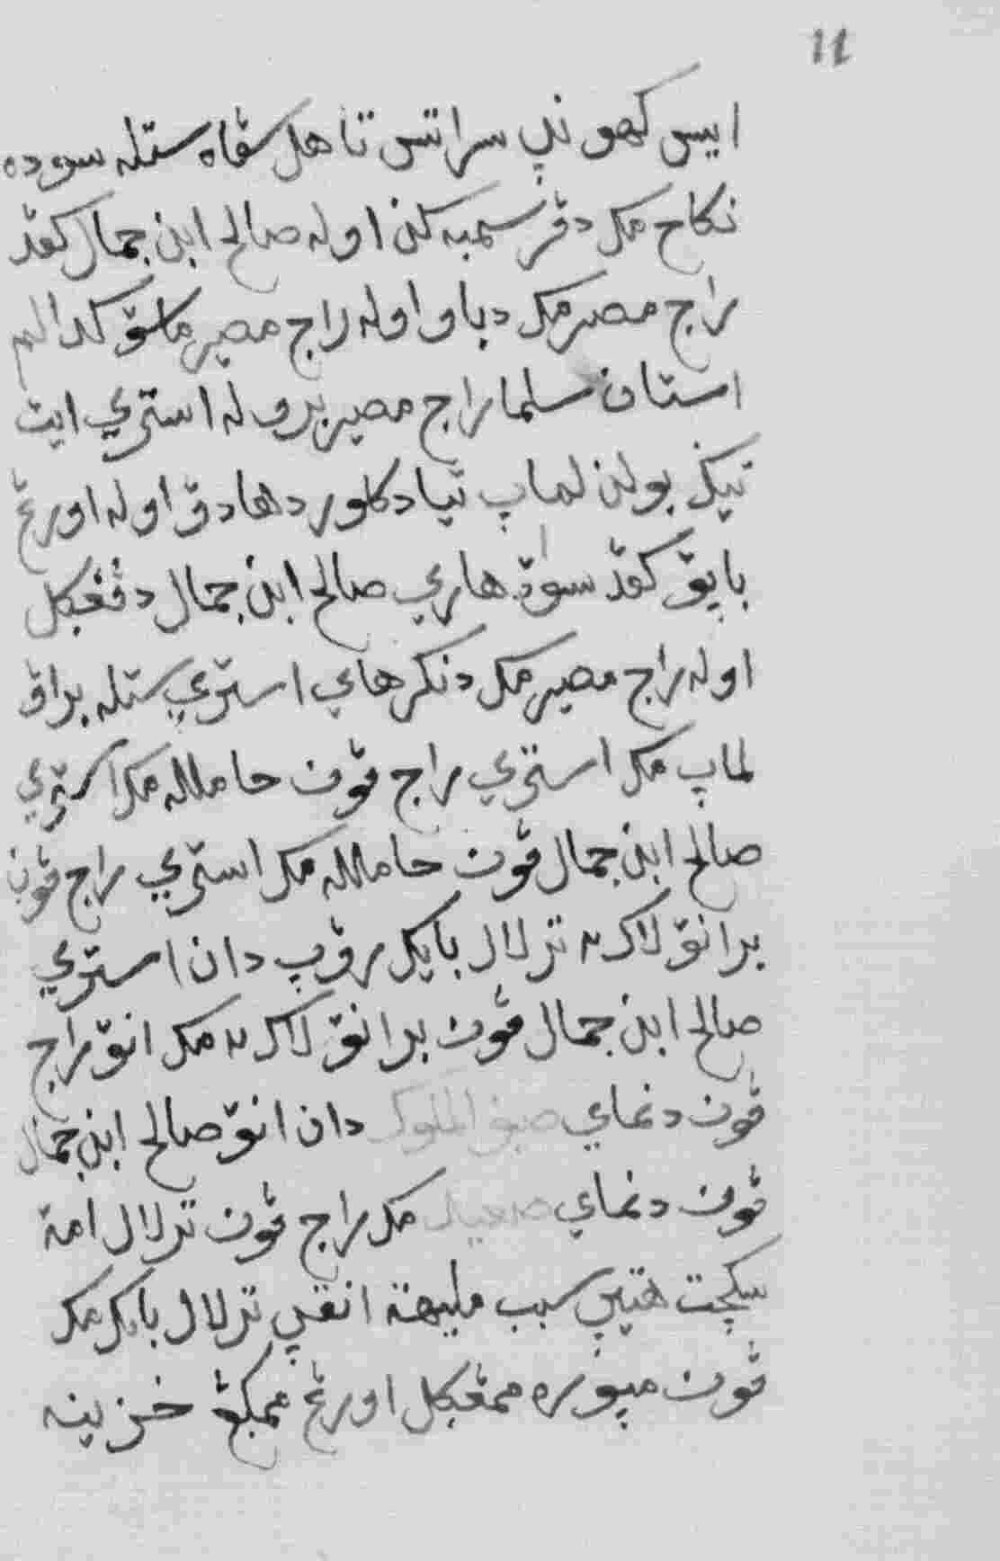 11
ايس کهوندڽ سراتس تاهل سڤاه ستله سوده
نکاح مک دڤرسمبهکن اوله صالح ابن جمال کڤد
راج مصر مک دباو اوله راج مصير ماسوق کدالم
استان سلما راج مصير بروله استري ايت
تياد کاور دهادڤ اوله اورڠ
باپق کڤد سواتو هاري صالح ابن جمال دڤڠݢل
اوله راج مصير مک دنکرهاي استري ستله براڤ
لماپ مک استري راج ڤون حامله مک استري
صالح ابن جمال ڤون حامله مک استري راج ڤون
برانق لاکي٢ ترلالو بايک روڤاپ دان استري
صالح ابن جمال ڤون برانق لاکي٢ مک انق راج
ڤون دنماي صيف الملوک دان انق صالح ابن جمال
ڤون دنماي صعيد مک راج ڤون ترلالو امة
سکچت هتيڽ سبب مليهة انقڽ ترلالو بايک مک
ڤون مپوره ممڠݢل اورڠ ممبوک خزينه